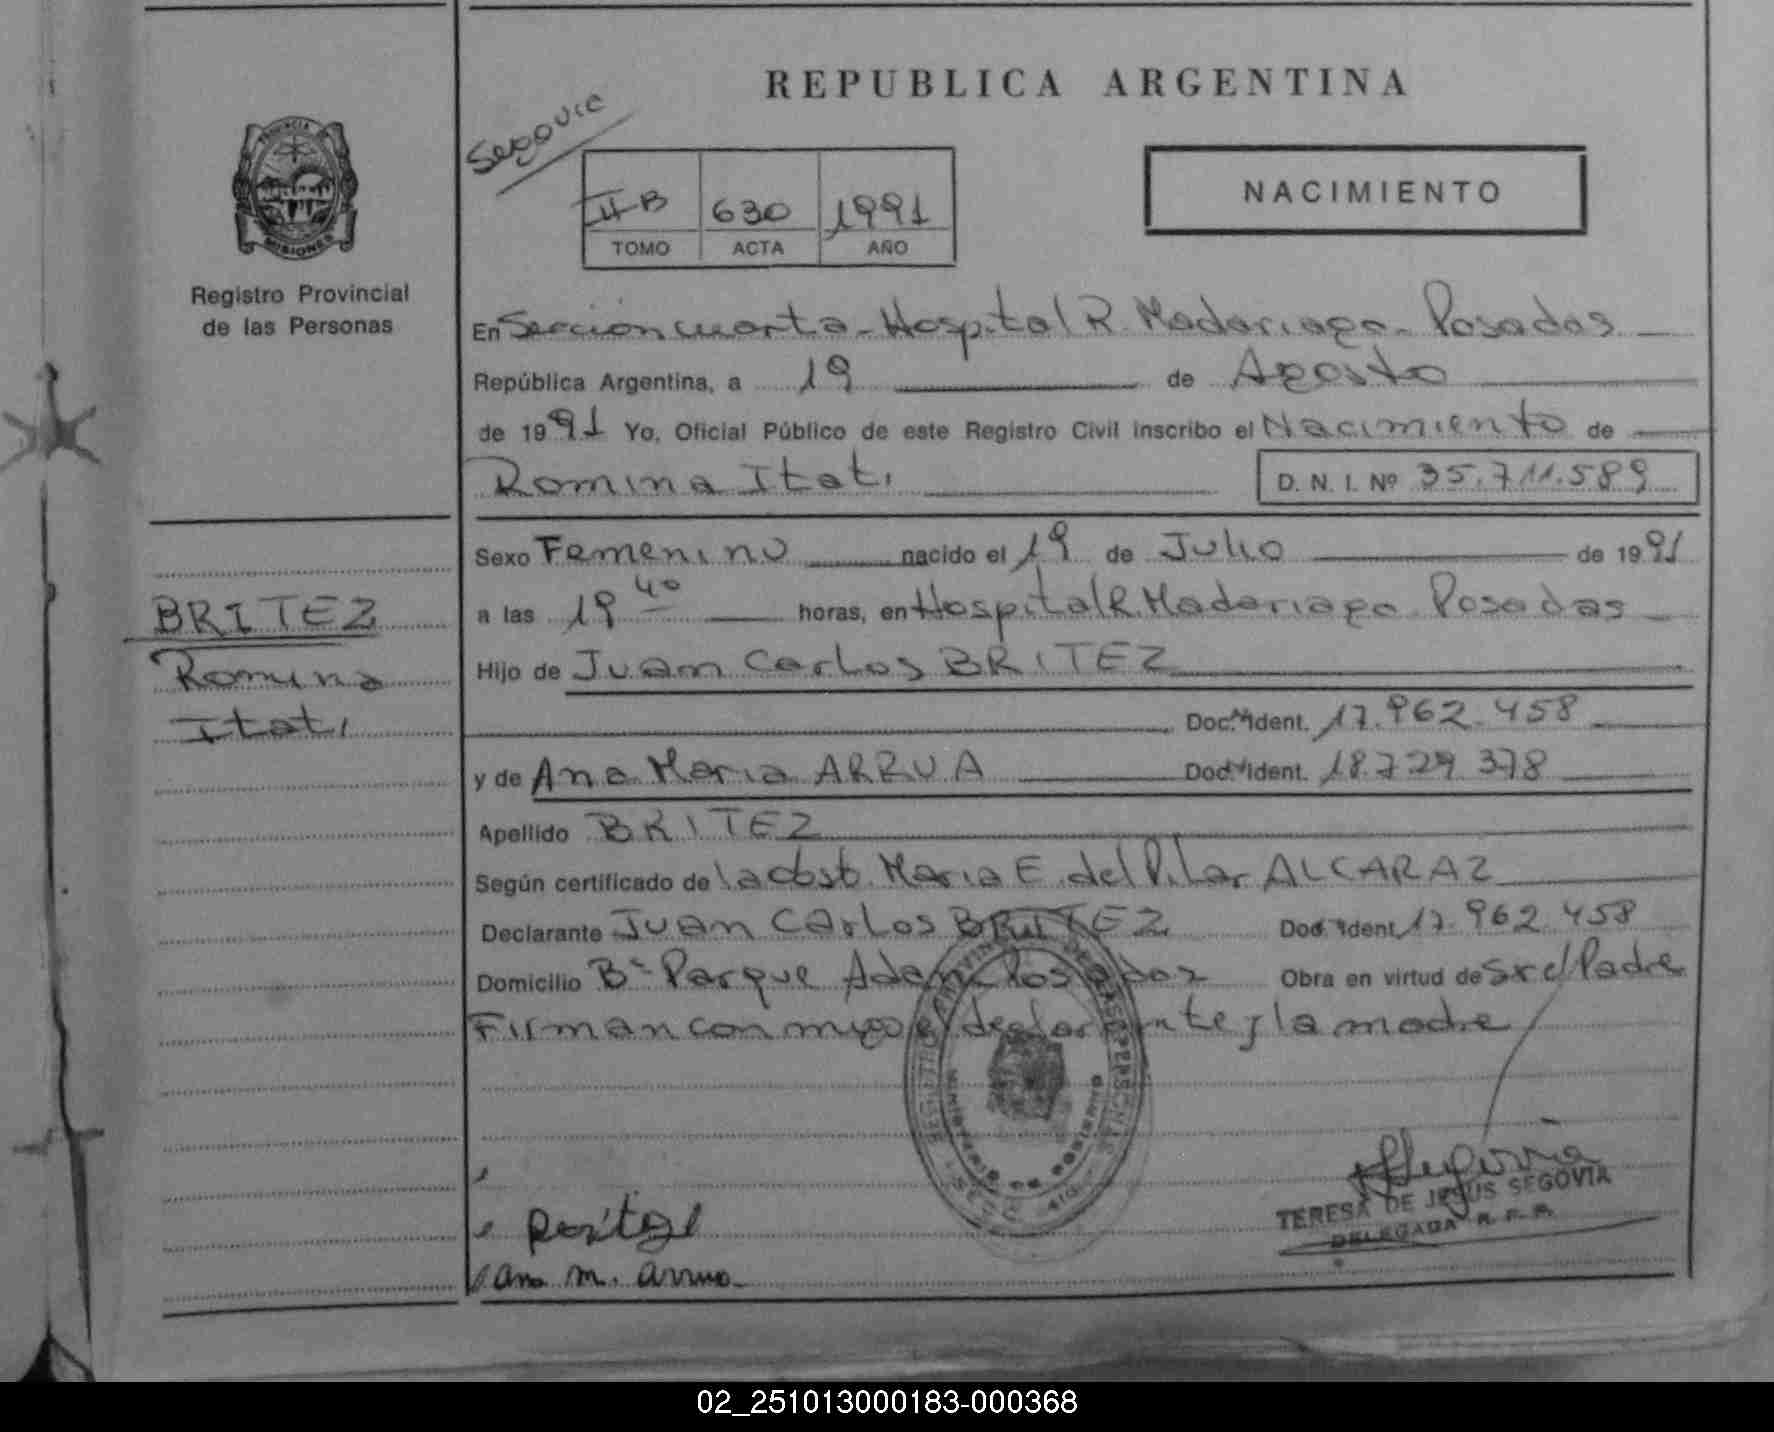 REPUBLICA ARGENTINA
Segovia
PROVINCIA DE
MISIONES
Registro Provincial
de las Personas
II B 630 1991
TOMO ACTA AÑO
NACIMIENTO
En Sección cuarta - Hospital R. Madariaga - Posadas
República Argentina, a 19 de Agosto
de 1991 Yo, Oficial Público de este Registro Civil inscribo el Nacimiento de
Romina Itati D. N. I. Nº 35.711.589
Sexo Femenino nacido el 19 de Julio de 1991
a las 19 40 horas, en Hospital R. Madariaga Posadas
Hijo de Juan Carlos BRITEZ
Doc. Ident. 17.962.458
y de Ana Maria ARRUA Doc. Ident. 18.729.378
Apellido BRITEZ
Según certificado de la obst. Maria E. del Pilar ALCARAZ
Declarante Juan Carlos BRITEZ Doc. Ident. 17.962.458
Domicilio Bº Parque Adam Posadas Obra en virtud de ser el Padre
Firman conmigo el declarante y la madre
BRITEZ
Romina
Itati
MINISTERIO DE GOBIERNO
TERESA DE JESUS SEGOVIA
DELEGADA R. P. P.
Ana M. Arrua
02_251013000183-000368